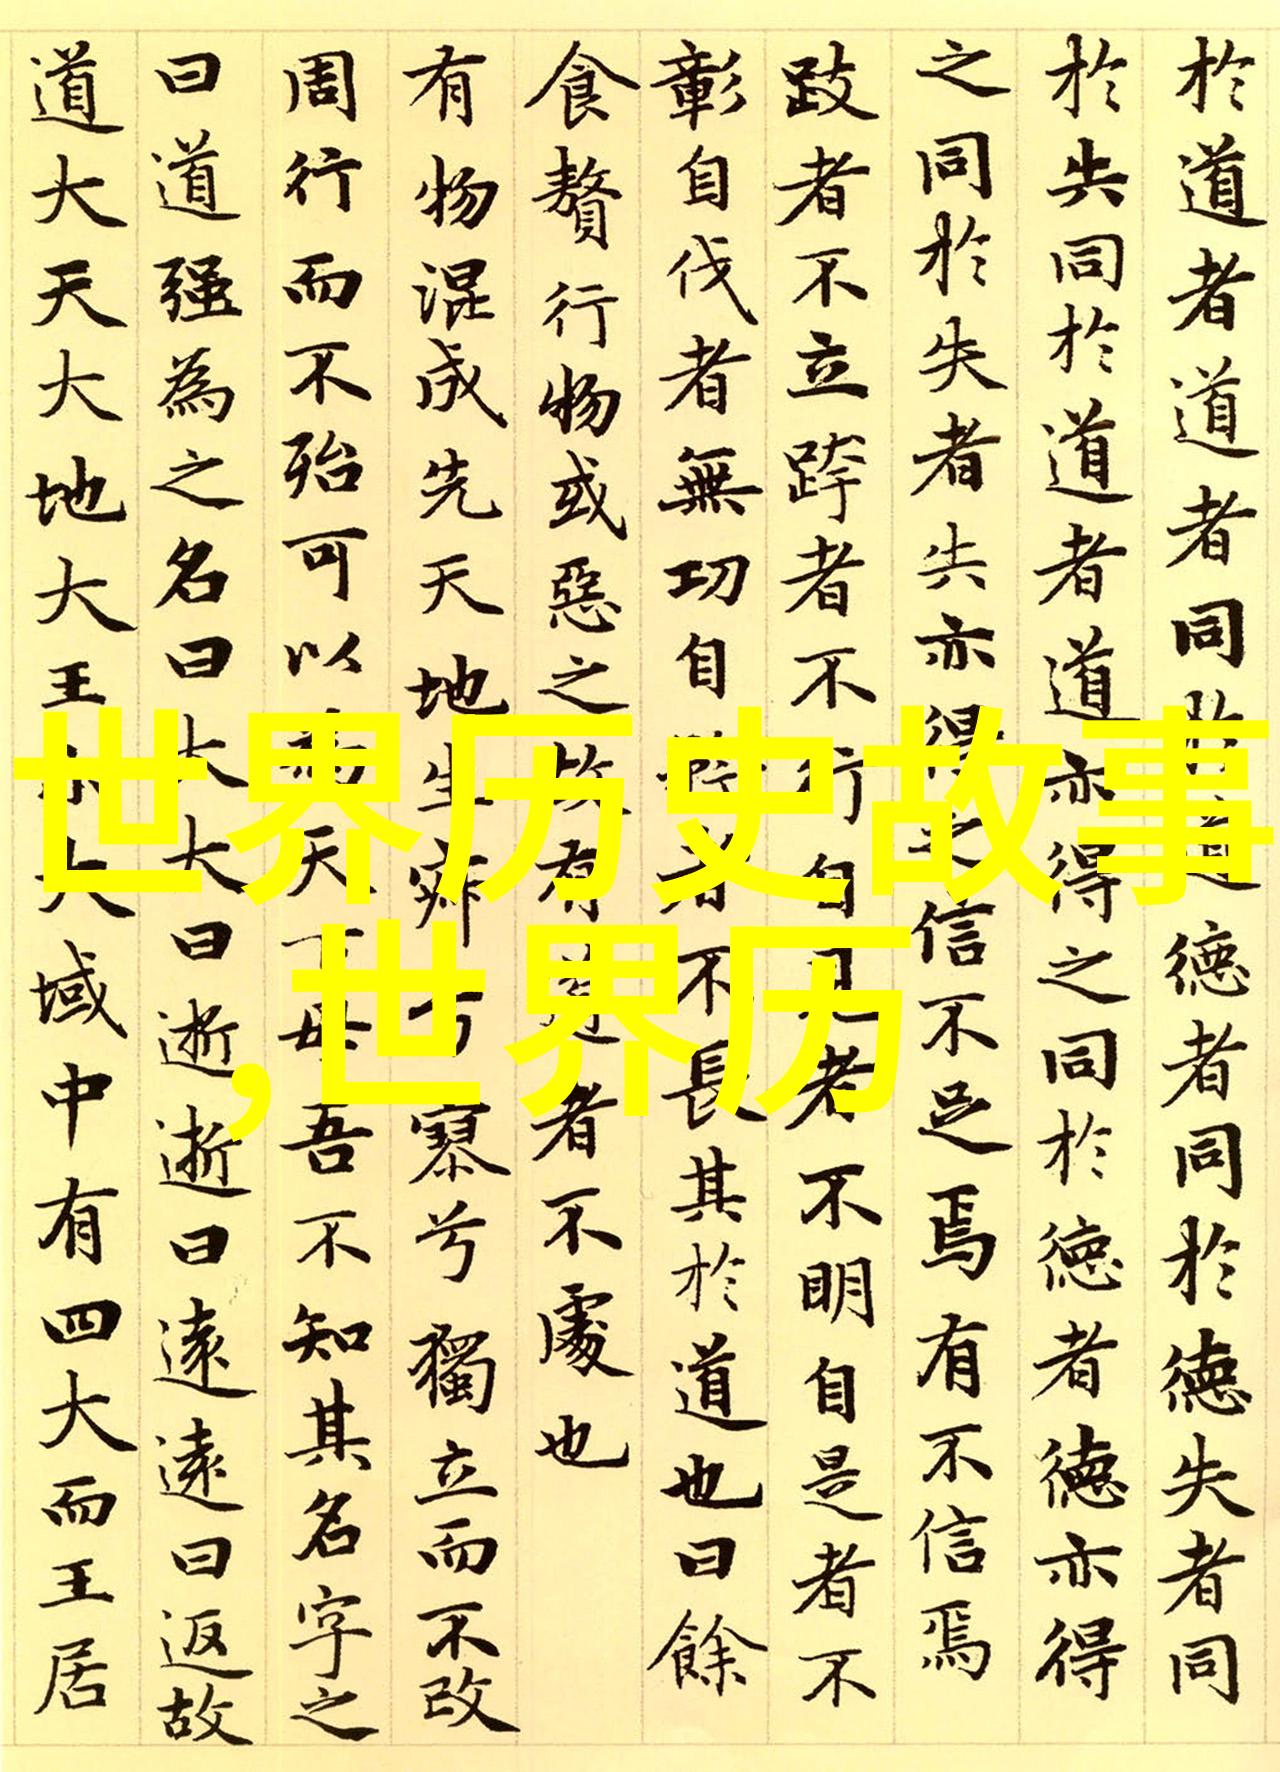 於道者道者同於道德者同於德失者同
於失同於道者道亦得之同於德者德亦得
之同於失者失亦得之信不足焉有不信焉
跂者不立跨者不行自見者不明自是者不
彰自伐者無功自矜者不長其於道也曰餘
食贅行物或惡之故有道者不處也
有物混成先天地生寂兮寥兮獨立而不改
周行而不殆可以為天下母吾不知其名字之
曰道强為之名曰大大曰逝逝曰遠遠曰返故
道大天大地大王亦大域中有四大而王居
世界历史故事
,世界历